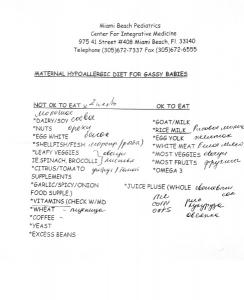 Miami Beach Pediatrics
Center For Integrative Medicine
975 41 Street #408 Miami Beach, Fl 33140
Telephone (305)672-7337 Fax (305)672-6555
MATERNAL HYPOALLERGIC DIET FOR GASSY BABIES
NOT OK TO EAT x 2 OK TO EAT
*DAIRY/SOY соевы *GOAT/MILK
*NUTS орехи *RICE MILK Рисовое
*EGG WHITE белок *EGG YOLK желток
*SHELLFISH/FISH *WHITE MEAT белое мясо
*LEAFY VEGGIES овощи *MOST VEGGIES овощи
IE.SPINACH, BROCCOLI *MOST FRUITS фрукты
*CITRUS/TOMATO *OMEGA 3
SUPPLEMENTS
*GARLIC/SPICY/ONION *JUICE PLUSE (WHOLE
FOOD SUPPLE.) rice рис
*VITAMINS (CHECK W/MD corn кукуруза
*WHEAT - пшеница oats овсянка
*COFFEE -
*YEAST
*EXCESS BEANS